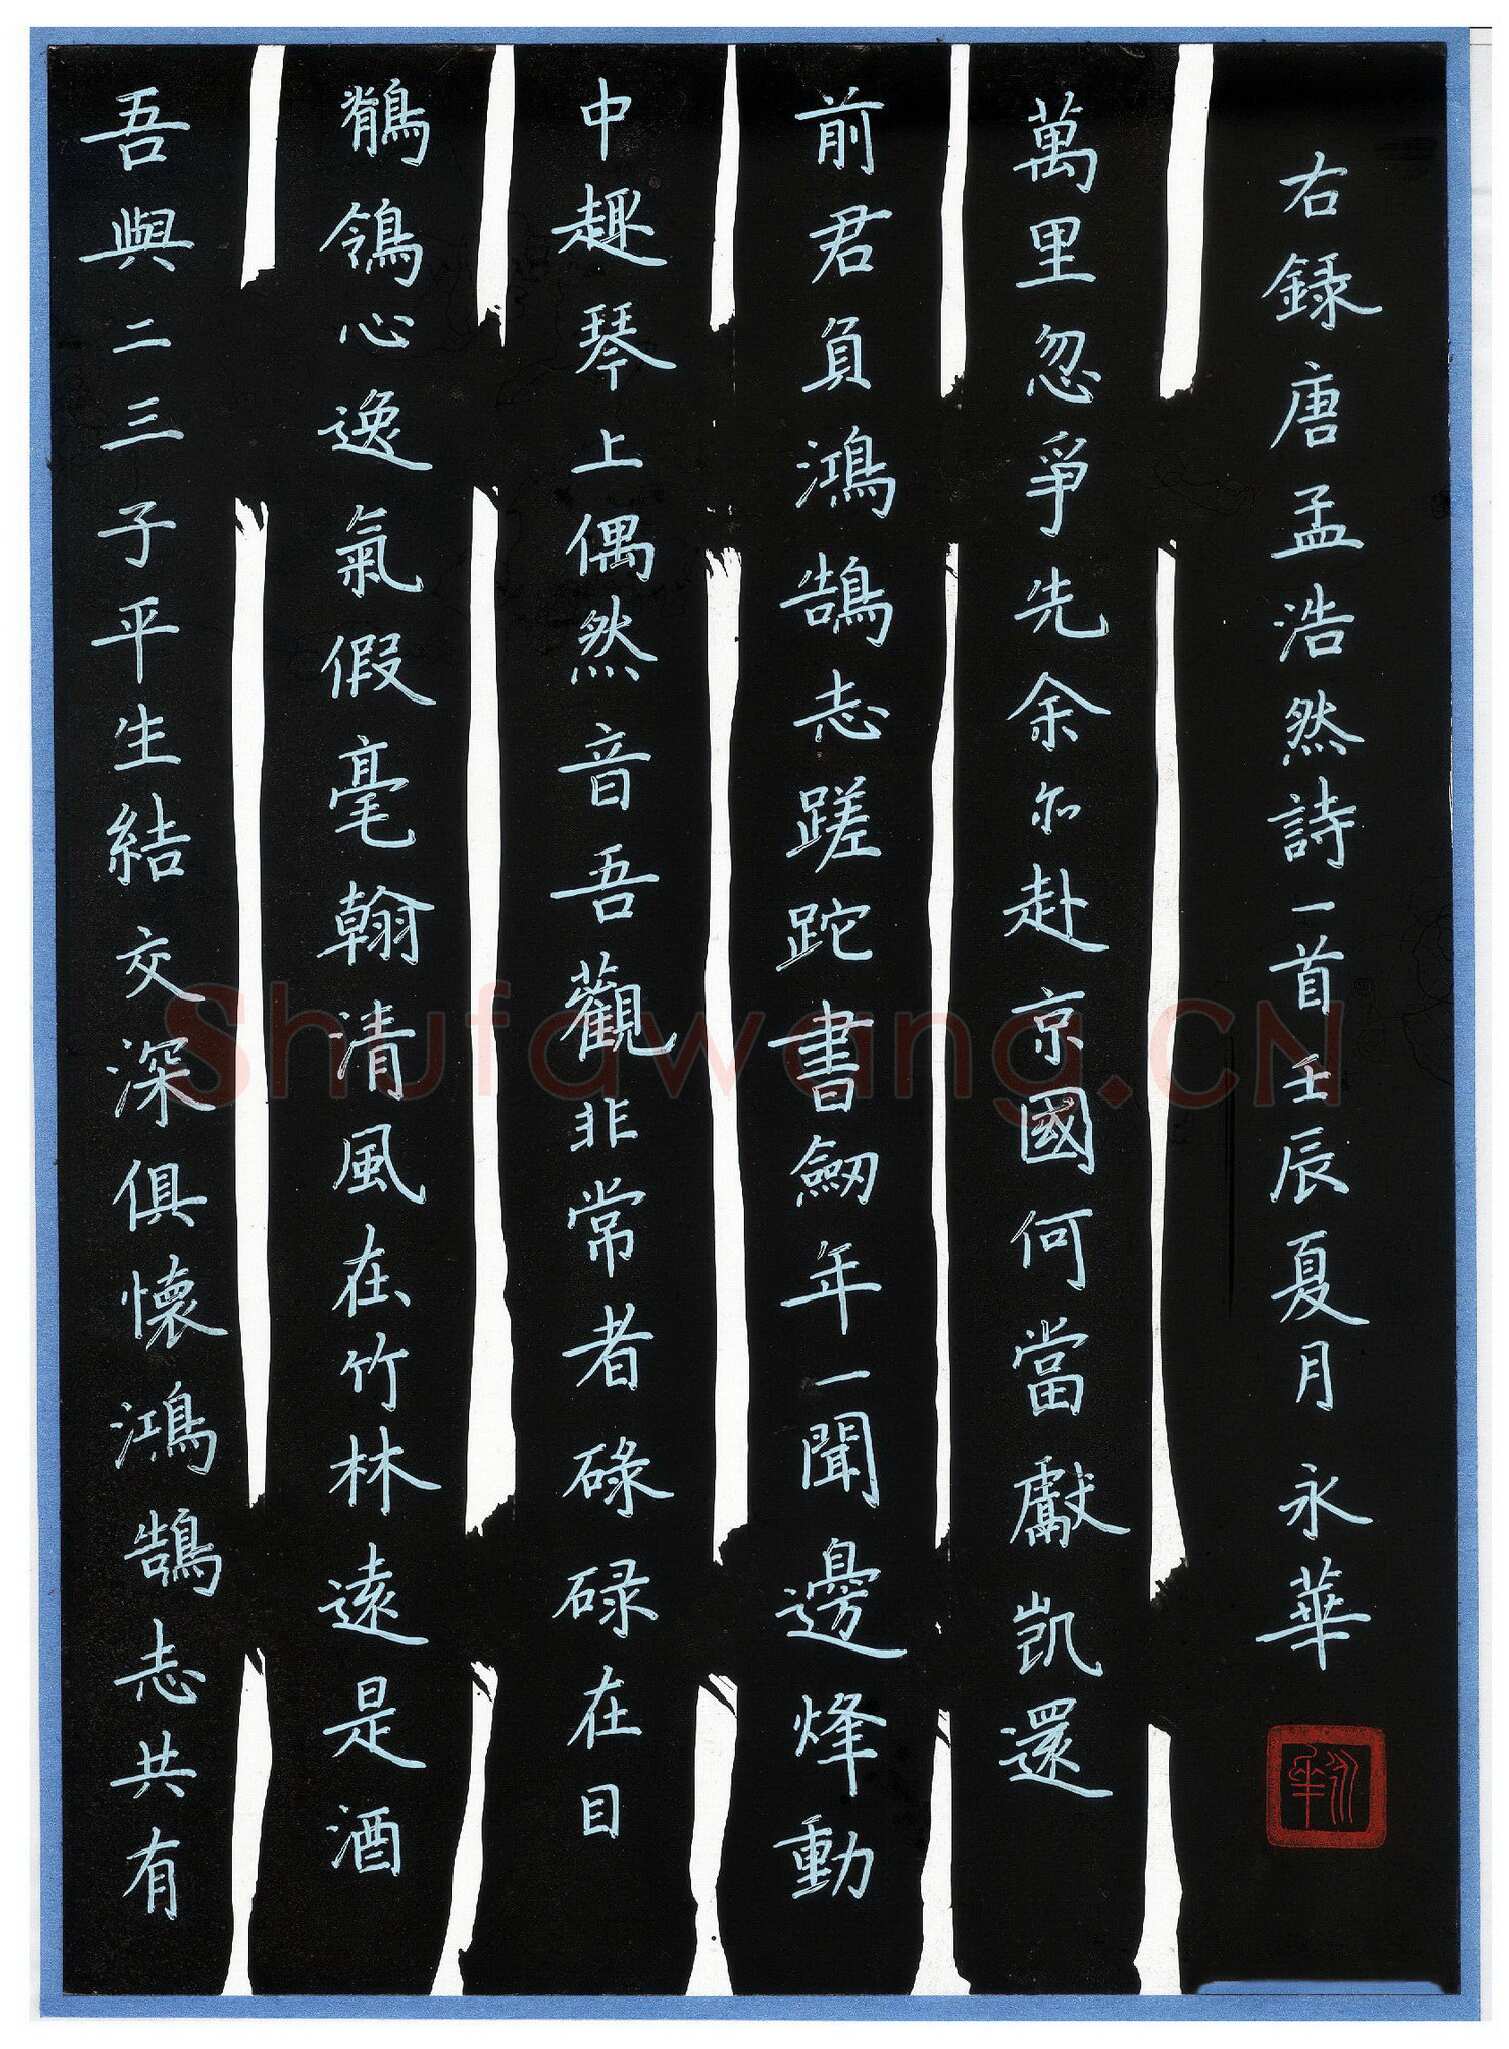 吾與二三子平生結交深俱懷鴻鵠志共有
鶺鴒心逸氣假毫翰清風在竹林遠是酒
中趣琴上偶然音吾觀非常者碌碌在目
前君負鴻鵠志蹉跎書劒年一聞邊烽動
萬里忽爭先余尓赴京國何當獻凱還
右録唐孟浩然詩一首壬辰夏月永華
永華
Shufawang.CN